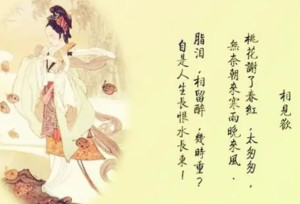 相見歡
桃花謝了春紅,太匆匆,
無奈朝來寒雨晚來風.
脂淚,相留醉,幾時重?
自是人生長恨水長東!